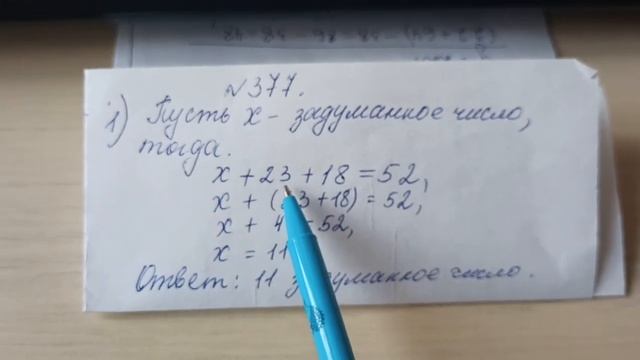 №377.
1) Пусть x - задуманное число,
тогда.
x + 23 + 18 = 52,
x + (23 + 18) = 52,
x + 4 = 52,
x = 11
Ответ: 11 задуманное число.